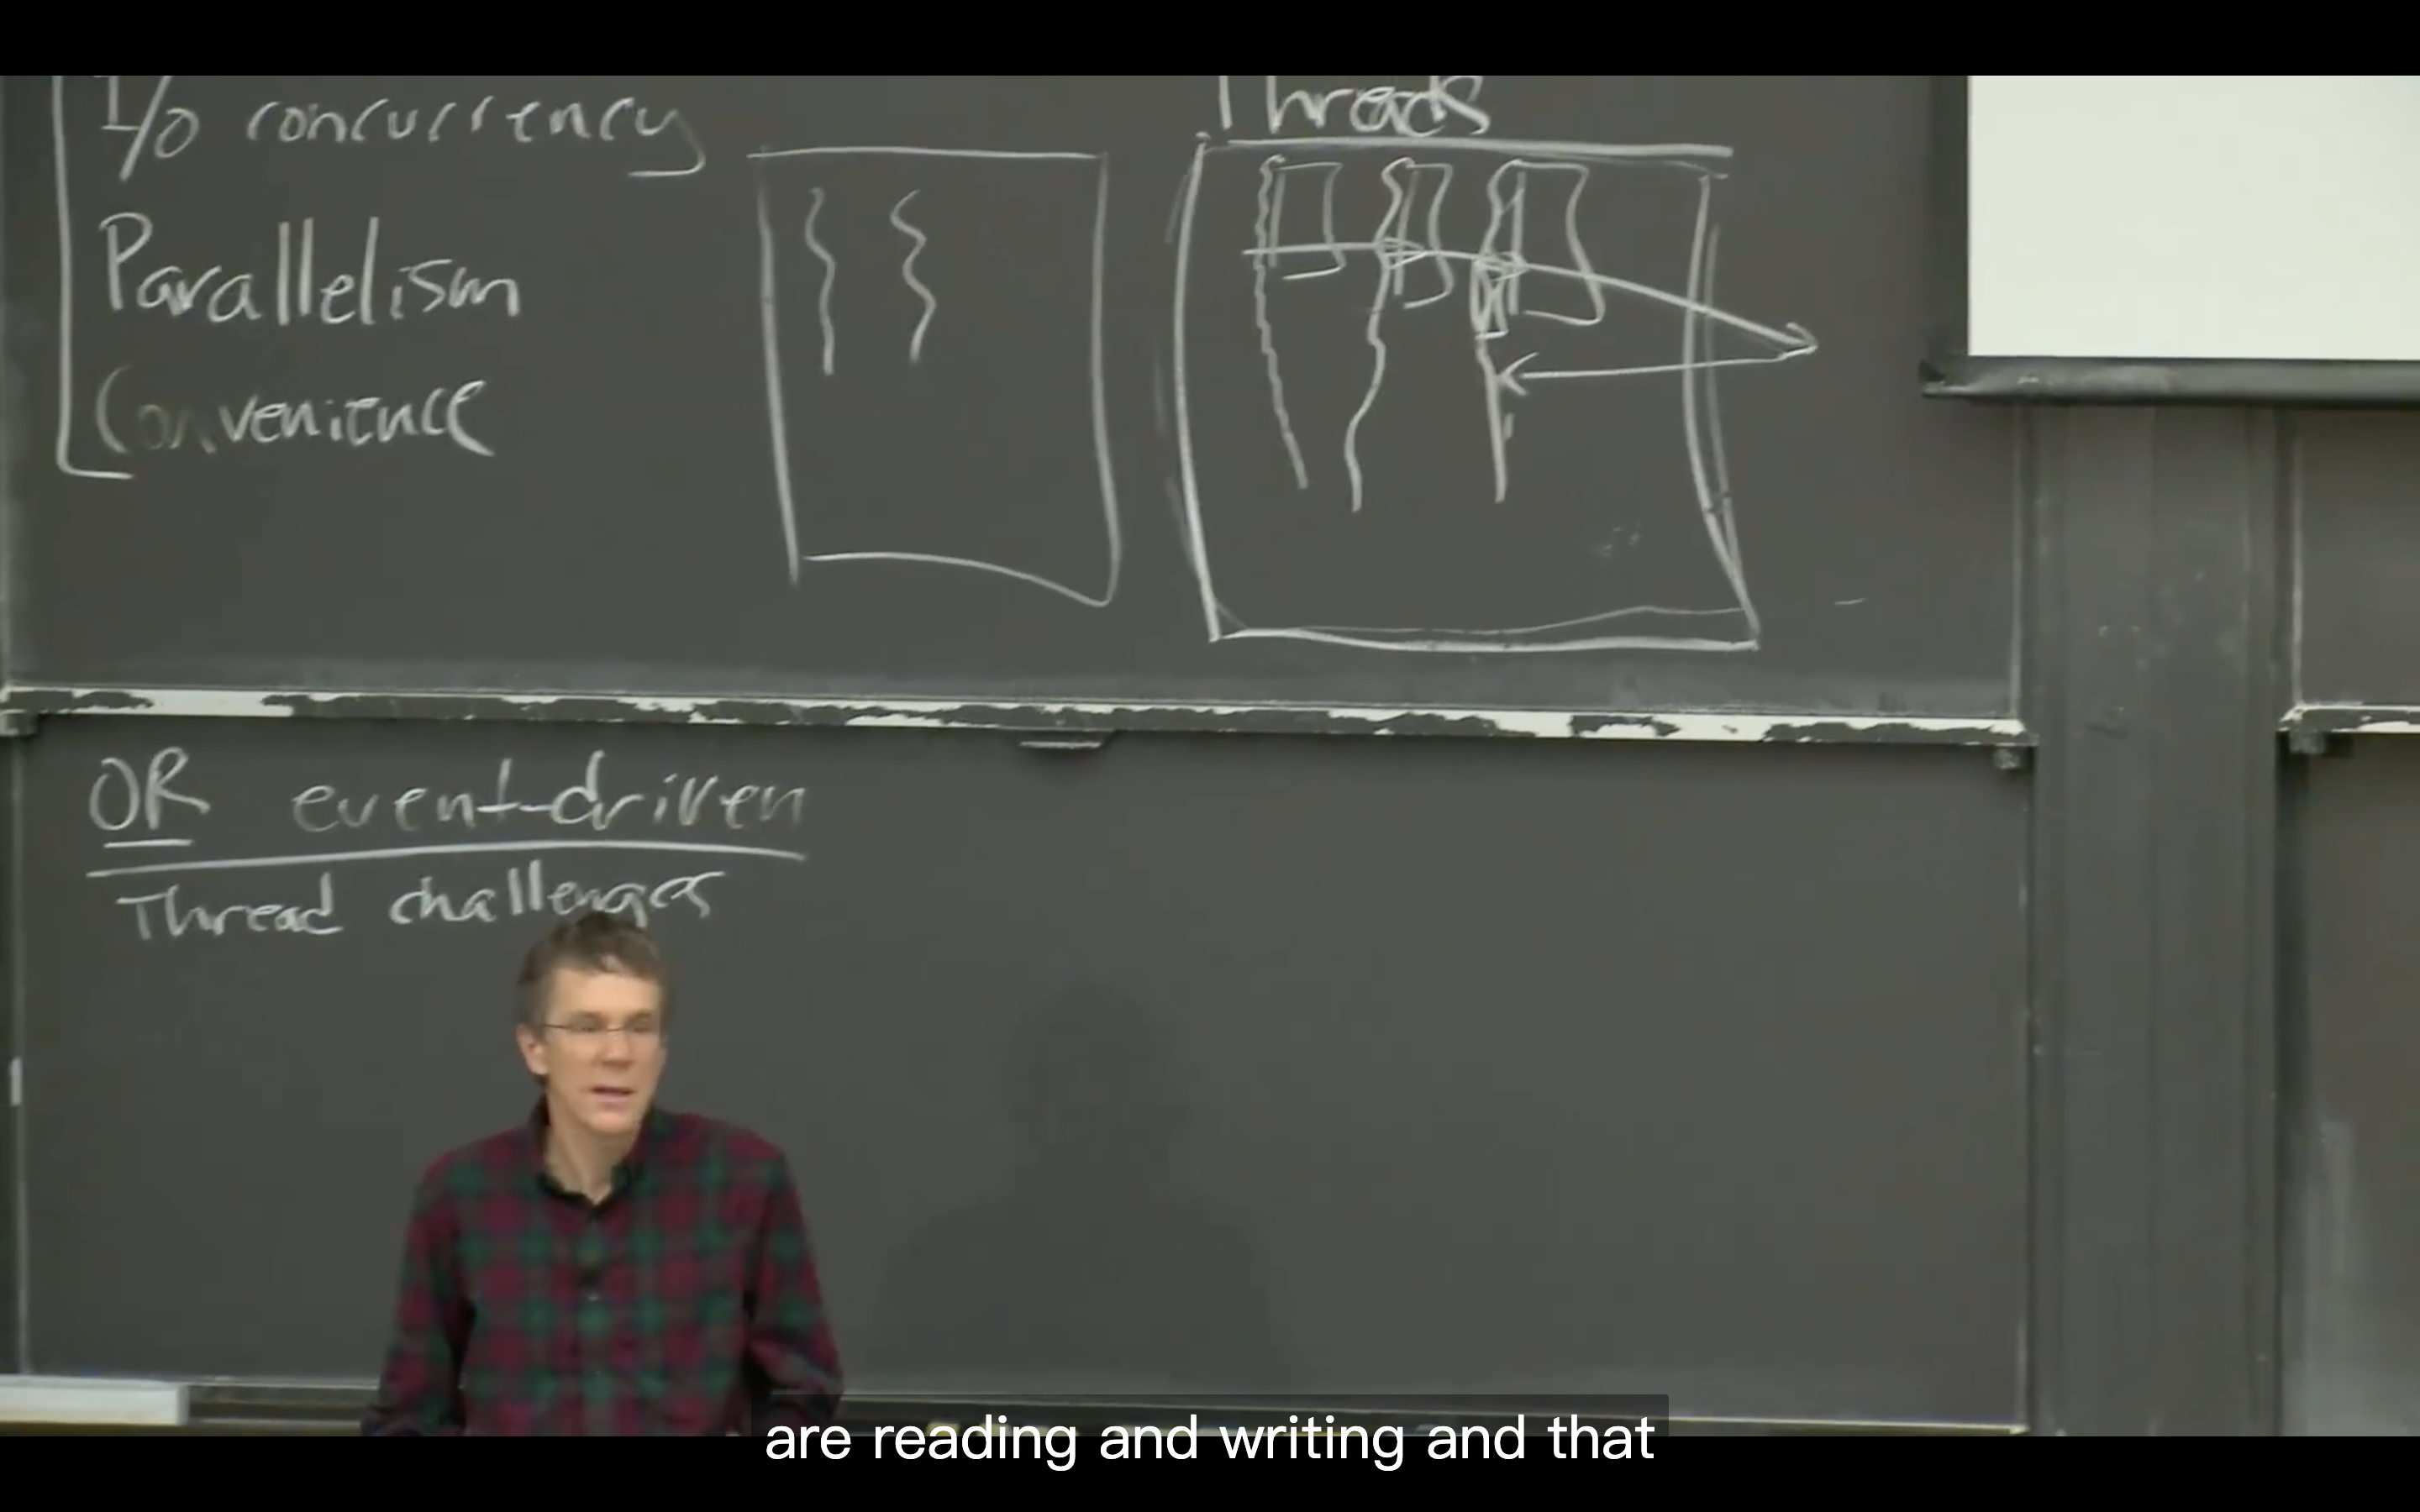 I/O concurrency
Parallelism
Convenience
Threads
OR event-driven
Thread challenges
are reading and writing and that